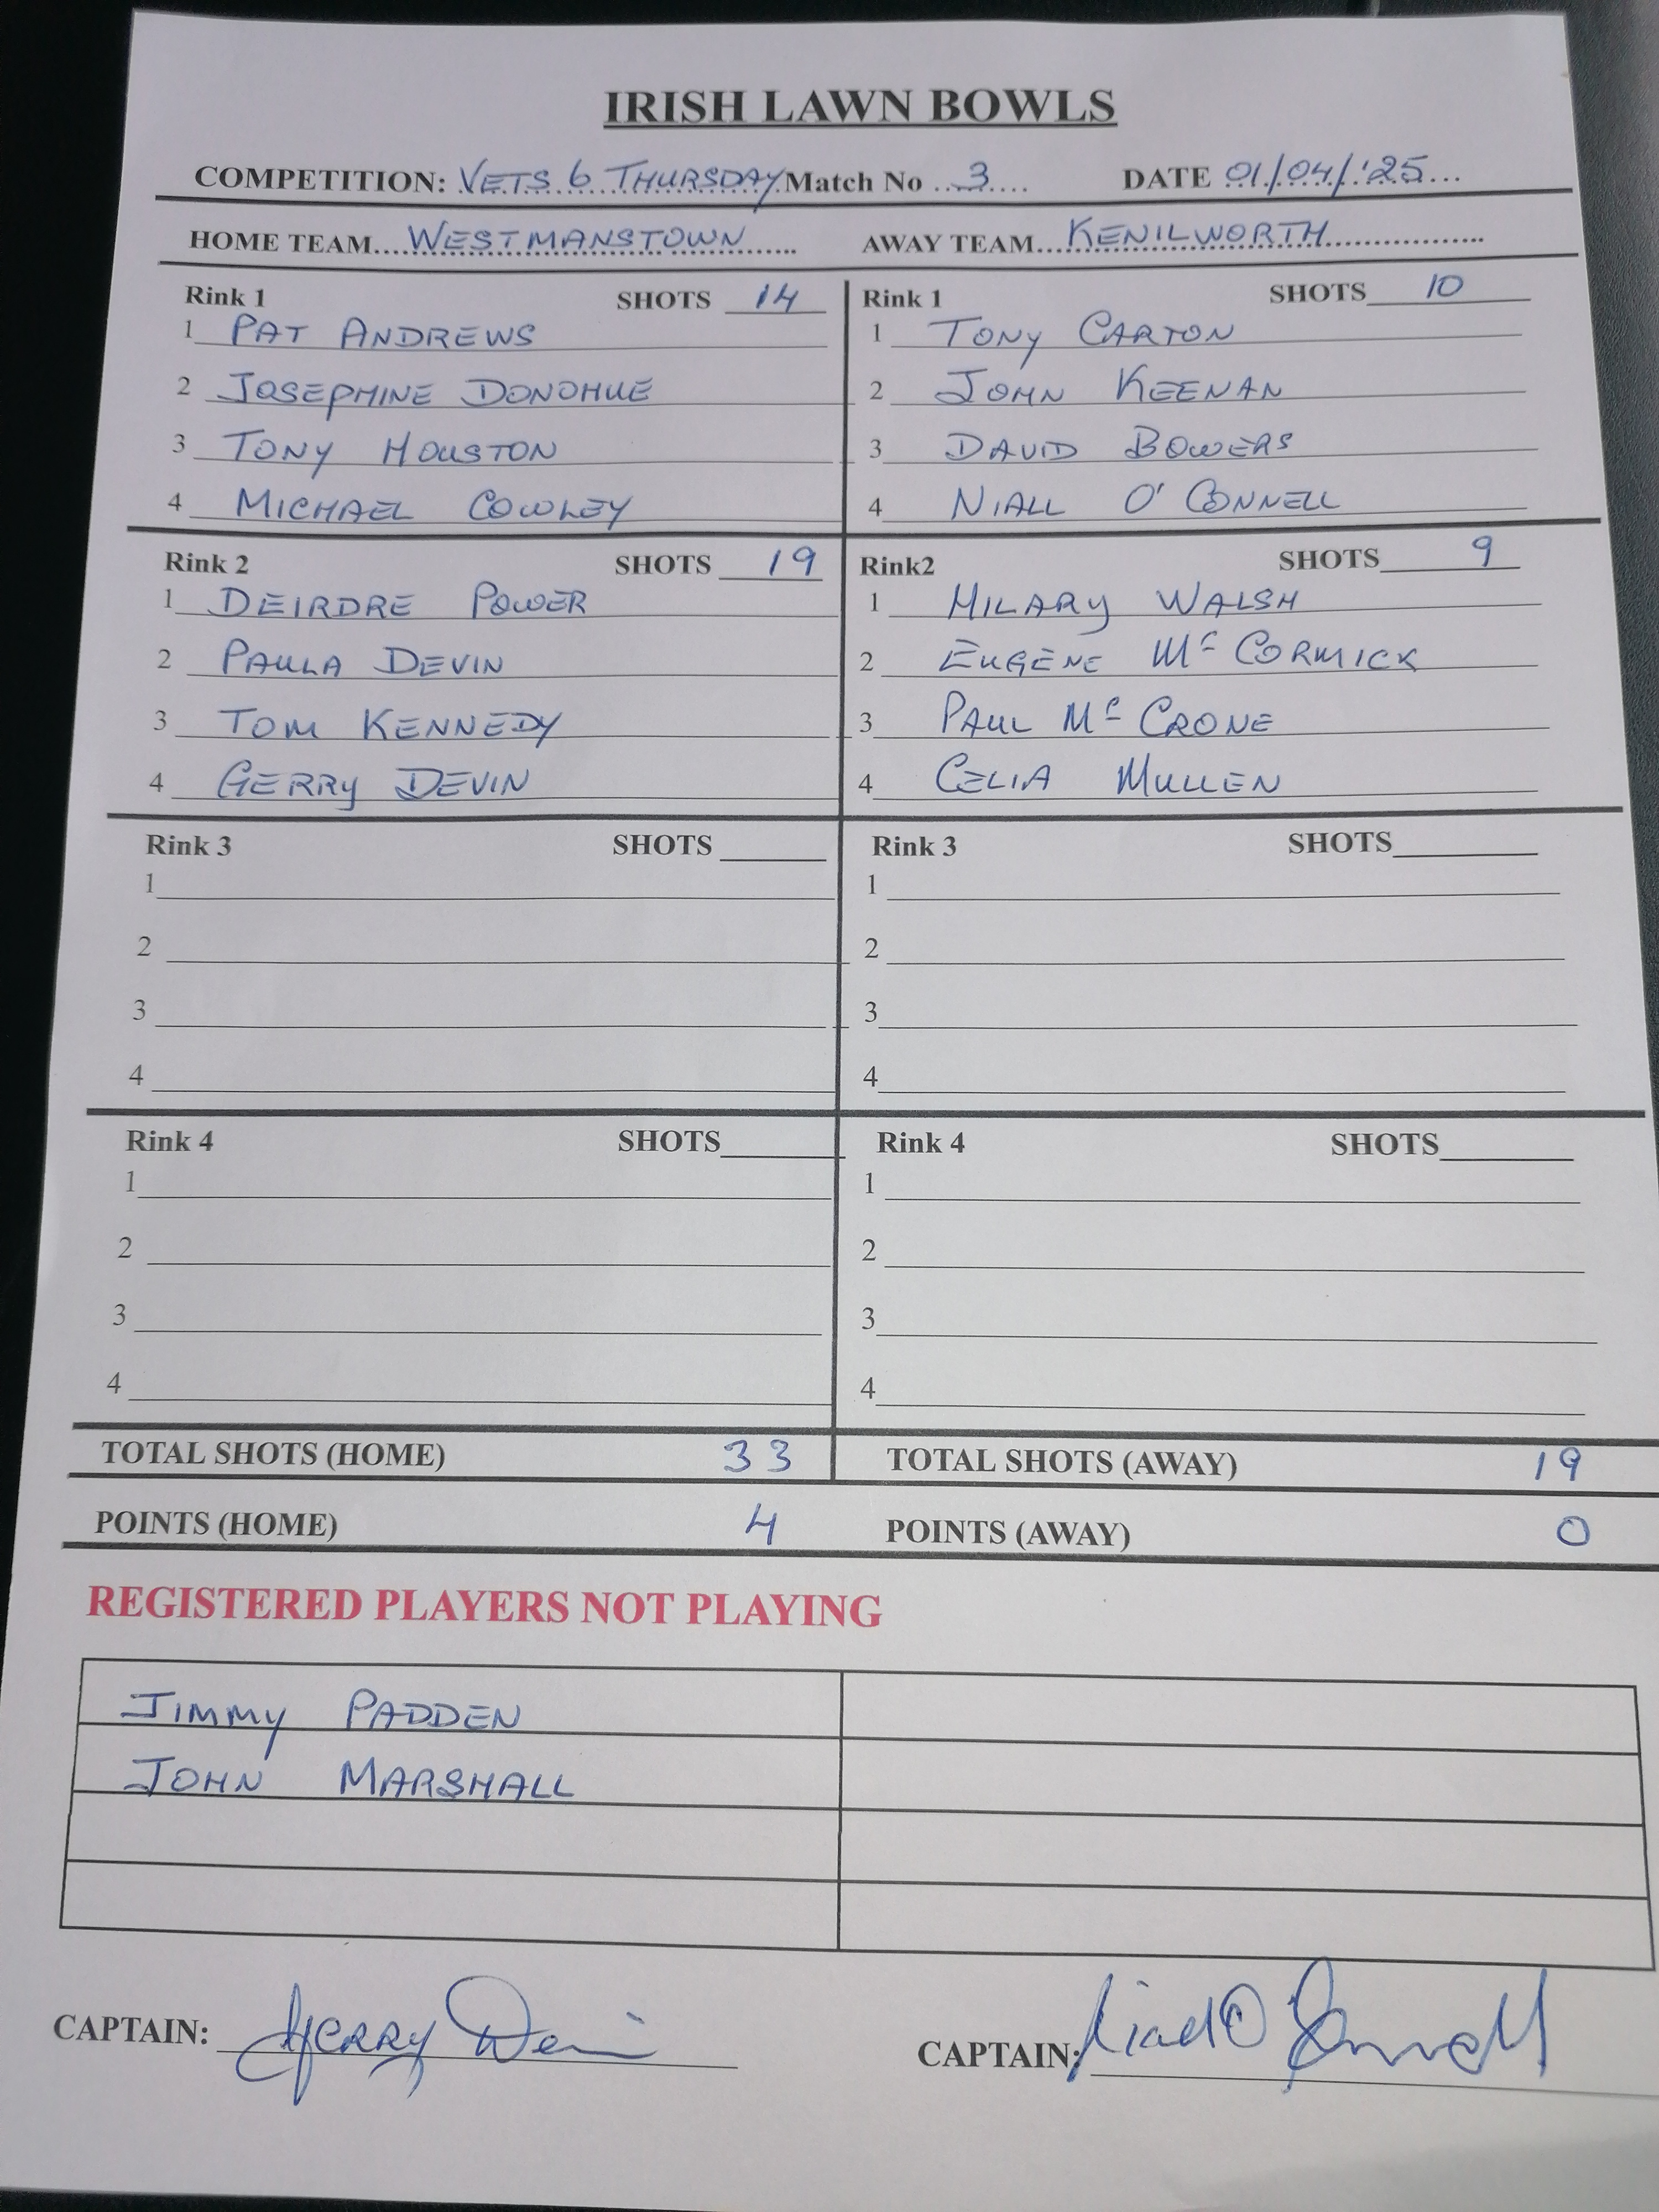 IRISH LAWN BOWLS
COMPETITION: VETS 6 THURSDAY Match No 3 DATE 01/04/'25
HOME TEAM WESTMANSTOWN AWAY TEAM KENILWORTH
Rink 1 SHOTS 14 Rink 1 SHOTS 10
1 PAT ANDREWS 1 TONY CARTON
2 JOSEPHINE DONOHUE 2 JOHN KEENAN
3 TONY HOUSTON 3 DAVID BOWERS
4 MICHAEL COWLEY 4 NIALL O'CONNELL
Rink 2 SHOTS 19 Rink2 SHOTS 9
1 DEIRDRE POWER 1 HILARY WALSH
2 PAULA DEVIN 2 EUGENE McCORMICK
3 TOM KENNEDY 3 PAUL McCRONE
4 GERRY DEVIN 4 CELIA MULLEN
Rink 3 SHOTS Rink 3 SHOTS
1 1
2 2
3 3
4 4
Rink 4 SHOTS Rink 4 SHOTS
1 1
2 2
3 3
4 4
TOTAL SHOTS (HOME) 33 TOTAL SHOTS (AWAY) 19
POINTS (HOME) 4 POINTS (AWAY) 0
REGISTERED PLAYERS NOT PLAYING
JIMMY PADDEN
JOHN MARSHALL
CAPTAIN: Gerry Devin CAPTAIN: Niall O'Connell